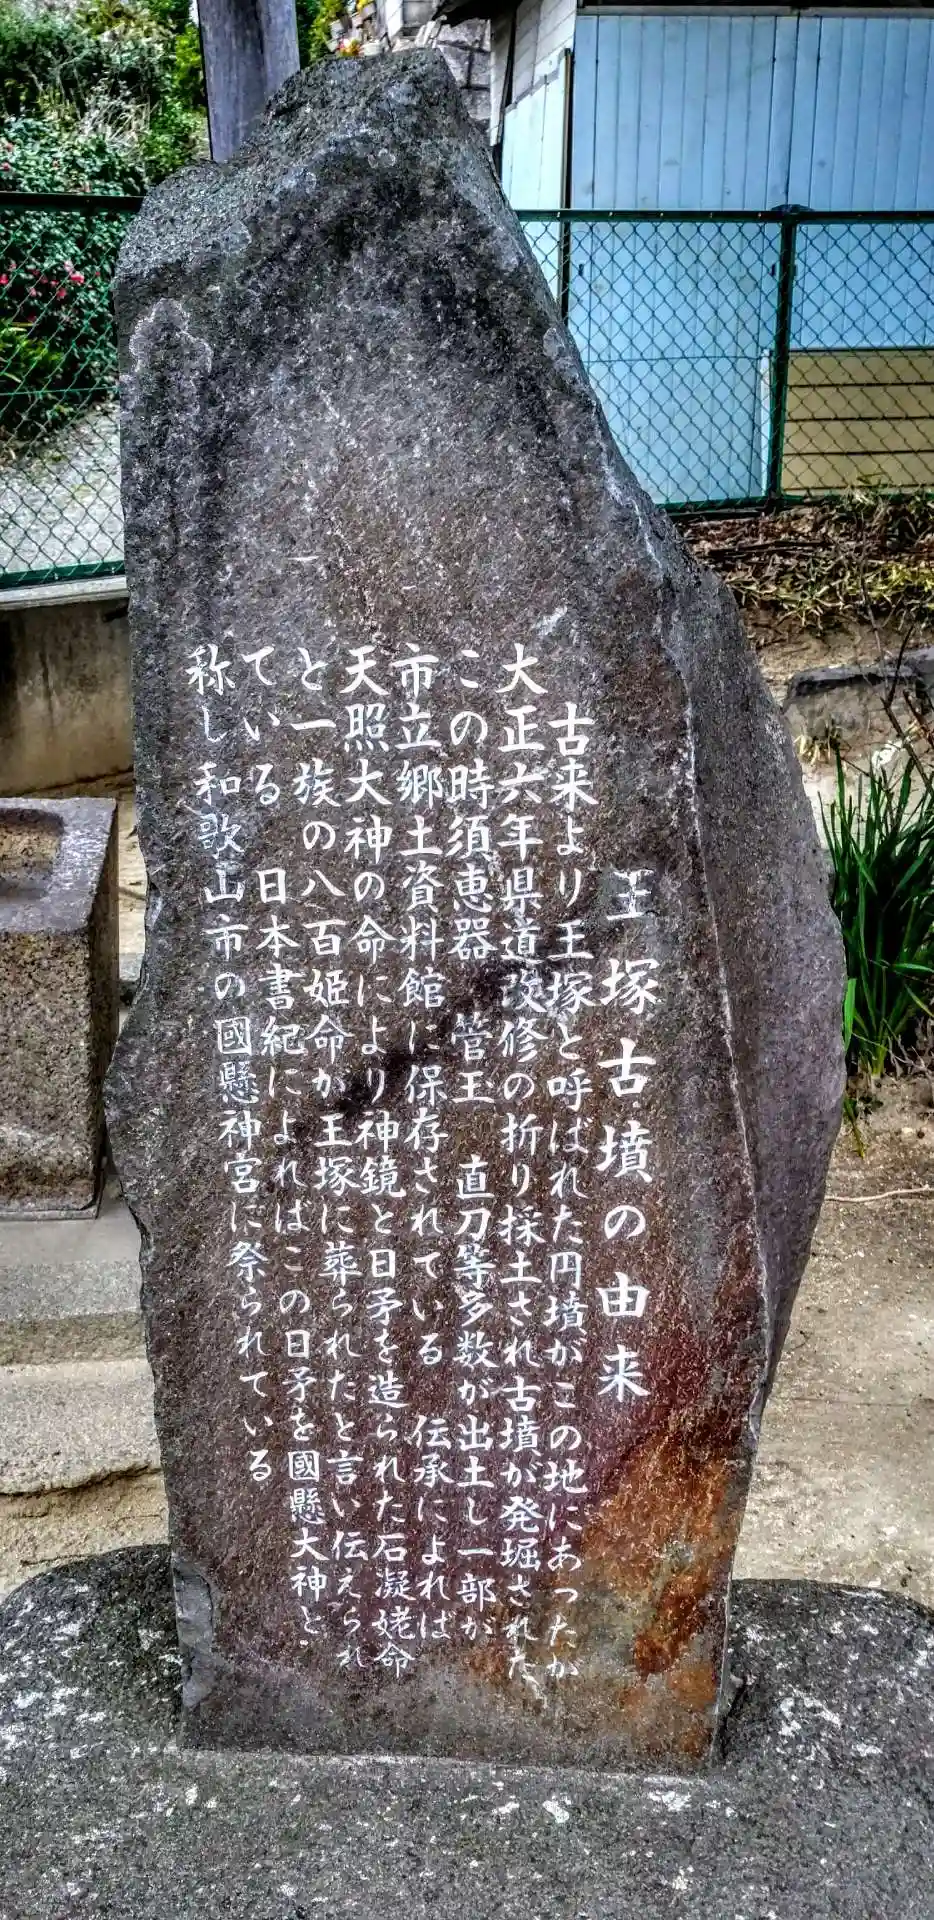 王塚古墳の由来
古来より王塚と呼ばれた円墳がこの地にあったが
大正六年県道改修の折り採土され古墳が発掘された
この時須恵器 管玉 直刀等多数が出土し一部が
市立郷土資料館に保存されている 伝承によれば
天照大神の命により神鏡と日矛を造られた石凝姥命
と一族の八百姫命が王塚に葬られたと言い伝えられ
ている 日本書紀によればこの日矛を國懸大神と
称し和歌山市の國懸神宮に祭られている